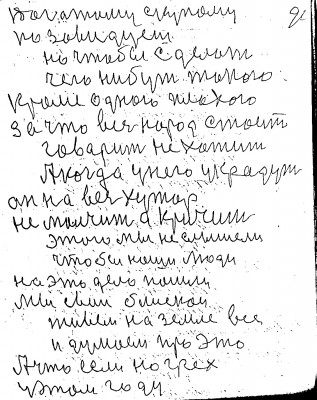 Богатому скупому
позавидуеш
но чтобы сделат
чего нибут такого
Кроме одного плохого
За что весь народ стоит
говорит не хотит
А когда у него украдут
он на весь хутор
не молчит а кричит
этого мы не слышели
чтобы нощи люди
на это дело пошли
Мы свои близкой
живем на земле все
и думаем про это
А что если на грех
у этом году